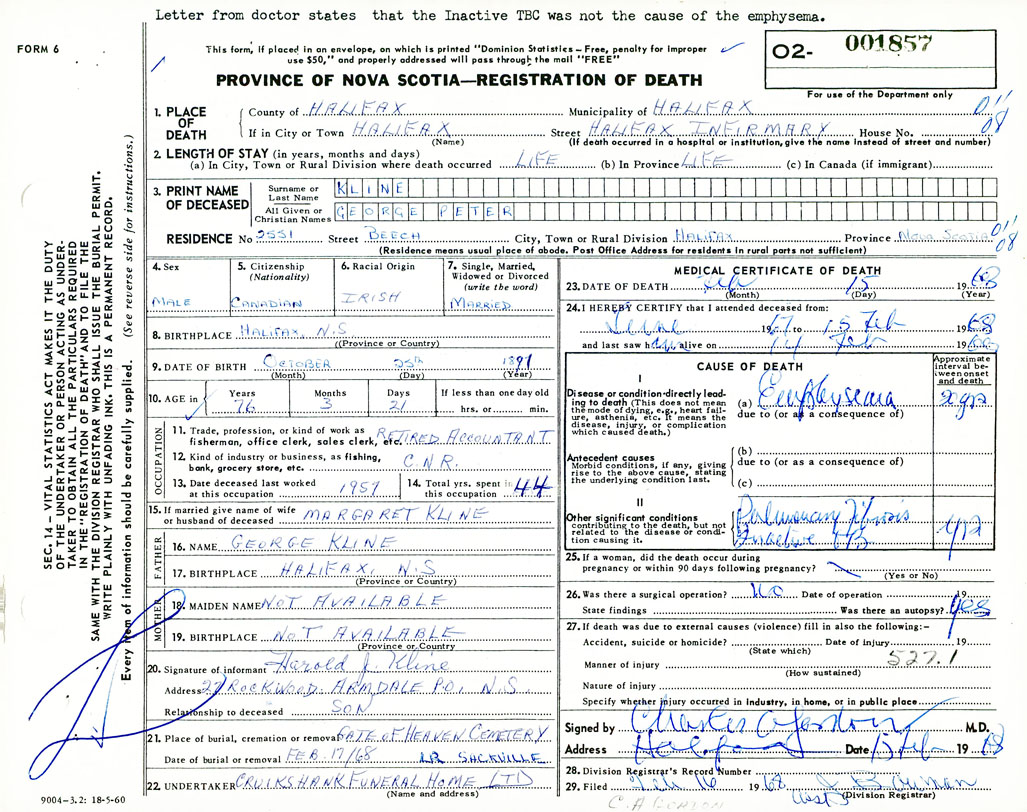 Letter from doctor states that the Inactive TBC was not the cause of the emphysema.
FORM 6
This form, if placed in an envelope, on which is printed "Dominion Statistics – Free, penalty for improper
use $50," and properly addressed will pass through the mail "FREE"
O2- 001857
For use of the Department only
PROVINCE OF NOVA SCOTIA—REGISTRATION OF DEATH
SEC. 14 – VITAL STATISTICS ACT MAKES IT THE DUTY
OF THE UNDERTAKER OR PERSON ACTING AS UNDER-
TAKER TO OBTAIN ALL THE PARTICULARS REQUIRED
IN THE "REGISTRATION OF DEATH" AND TO FILE THE
SAME WITH THE DIVISION REGISTRAR WHO SHALL ISSUE THE BURIAL PERMIT.
WRITE PLAINLY WITH UNFADING INK. THIS IS A PERMANENT RECORD.
Every item of information should be carefully supplied. (See reverse side for instructions.)
1. PLACE OF DEATH
County of HALIFAX Municipality of HALIFAX 011
If in City or Town HALIFAX Street HALIFAX INFIRMARY House No. 08
(Name) (If death occurred in a hospital or institution, give the name instead of street and number)
2. LENGTH OF STAY (in years, months and days)
(a) In City, Town or Rural Division where death occurred LIFE (b) In Province LIFE (c) In Canada (if immigrant)
3. PRINT NAME OF DECEASED
Surname or Last Name KLINE
All Given or Christian Names GEORGE PETER
RESIDENCE No 2551 Street BEECH City, Town or Rural Division HALIFAX Province NOVA SCOTIA 011 08
(Residence means usual place of abode. Post Office Address for residents in rural parts not sufficient)
4. Sex MALE
5. Citizenship (Nationality) CANADIAN
6. Racial Origin IRISH
7. Single, Married, Widowed or Divorced (write the word) MARRIED
8. BIRTHPLACE HALIFAX, N.S
(Province or Country)
9. DATE OF BIRTH OCTOBER 25th 1891
(Month) (Day) (Year)
10. AGE in Years 76 Months 3 Days 21 If less than one day old hrs. or min.
OCCUPATION
11. Trade, profession, or kind of work as fisherman, office clerk, sales clerk, etc. RETIRED ACCOUNTANT
12. Kind of industry or business, as fishing, bank, grocery store, etc. C.N.R.
13. Date deceased last worked at this occupation 1957
14. Total yrs. spent in this occupation 44
15. If married give name of wife or husband of deceased MARGARET KLINE
FATHER
16. NAME GEORGE KLINE
17. BIRTHPLACE HALIFAX, N.S
(Province or Country)
MOTHER
18. MAIDEN NAME NOT AVAILABLE
19. BIRTHPLACE NOT AVAILABLE
(Province or Country)
20. Signature of informant Harold J Kline
Address 27 ROCKWOOD ARMDALE P.O. N.S.
Relationship to deceased SON
21. Place of burial, cremation or removal GATE OF HEAVEN CEMETERY
Date of burial or removal FEB. 17/68 LR. SACKVILLE
22. UNDERTAKER CRUIKSHANK FUNERAL HOME LTD
(Name and address)
9004-3.2: 18-5-60
MEDICAL CERTIFICATE OF DEATH
23. DATE OF DEATH 15 1968
(Month) (Day) (Year)
24. I HEREBY CERTIFY that I attended deceased from:
June 1967 to 15 Feb 1968
and last saw him alive on 14 Feb 1968
CAUSE OF DEATH
Approximate interval between onset and death
I
Disease or condition directly leading to death (This does not mean the mode of dying, e.g., heart failure, asthenia, etc. It means the disease, injury, or complication which caused death.)
(a) Emphysema
due to (or as a consequence of)
Antecedent causes
Morbid conditions, if any, giving rise to the above cause, stating the underlying condition last.
(b)
due to (or as a consequence of)
(c)
II
Other significant conditions contributing to the death, but not related to the disease or condition causing it.
Pulmonary Fibrosis
Inactive TB
25. If a woman, did the death occur during pregnancy or within 90 days following pregnancy?
(Yes or No)
26. Was there a surgical operation? No Date of operation 19
State findings Was there an autopsy? Yes
27. If death was due to external causes (violence) fill in also the following:–
Accident, suicide or homicide? Date of injury 19
(State which) 527.1
Manner of injury
(How sustained)
Nature of injury
Specify whether injury occurred in industry, in home, or in public place
Signed by Charles A Gordon M.D.
Address Halifax Date 15 Feb 1968
28. Division Registrar's Record Number
29. Filed Feb 16 1968
(Division Registrar)
C. A GORDON